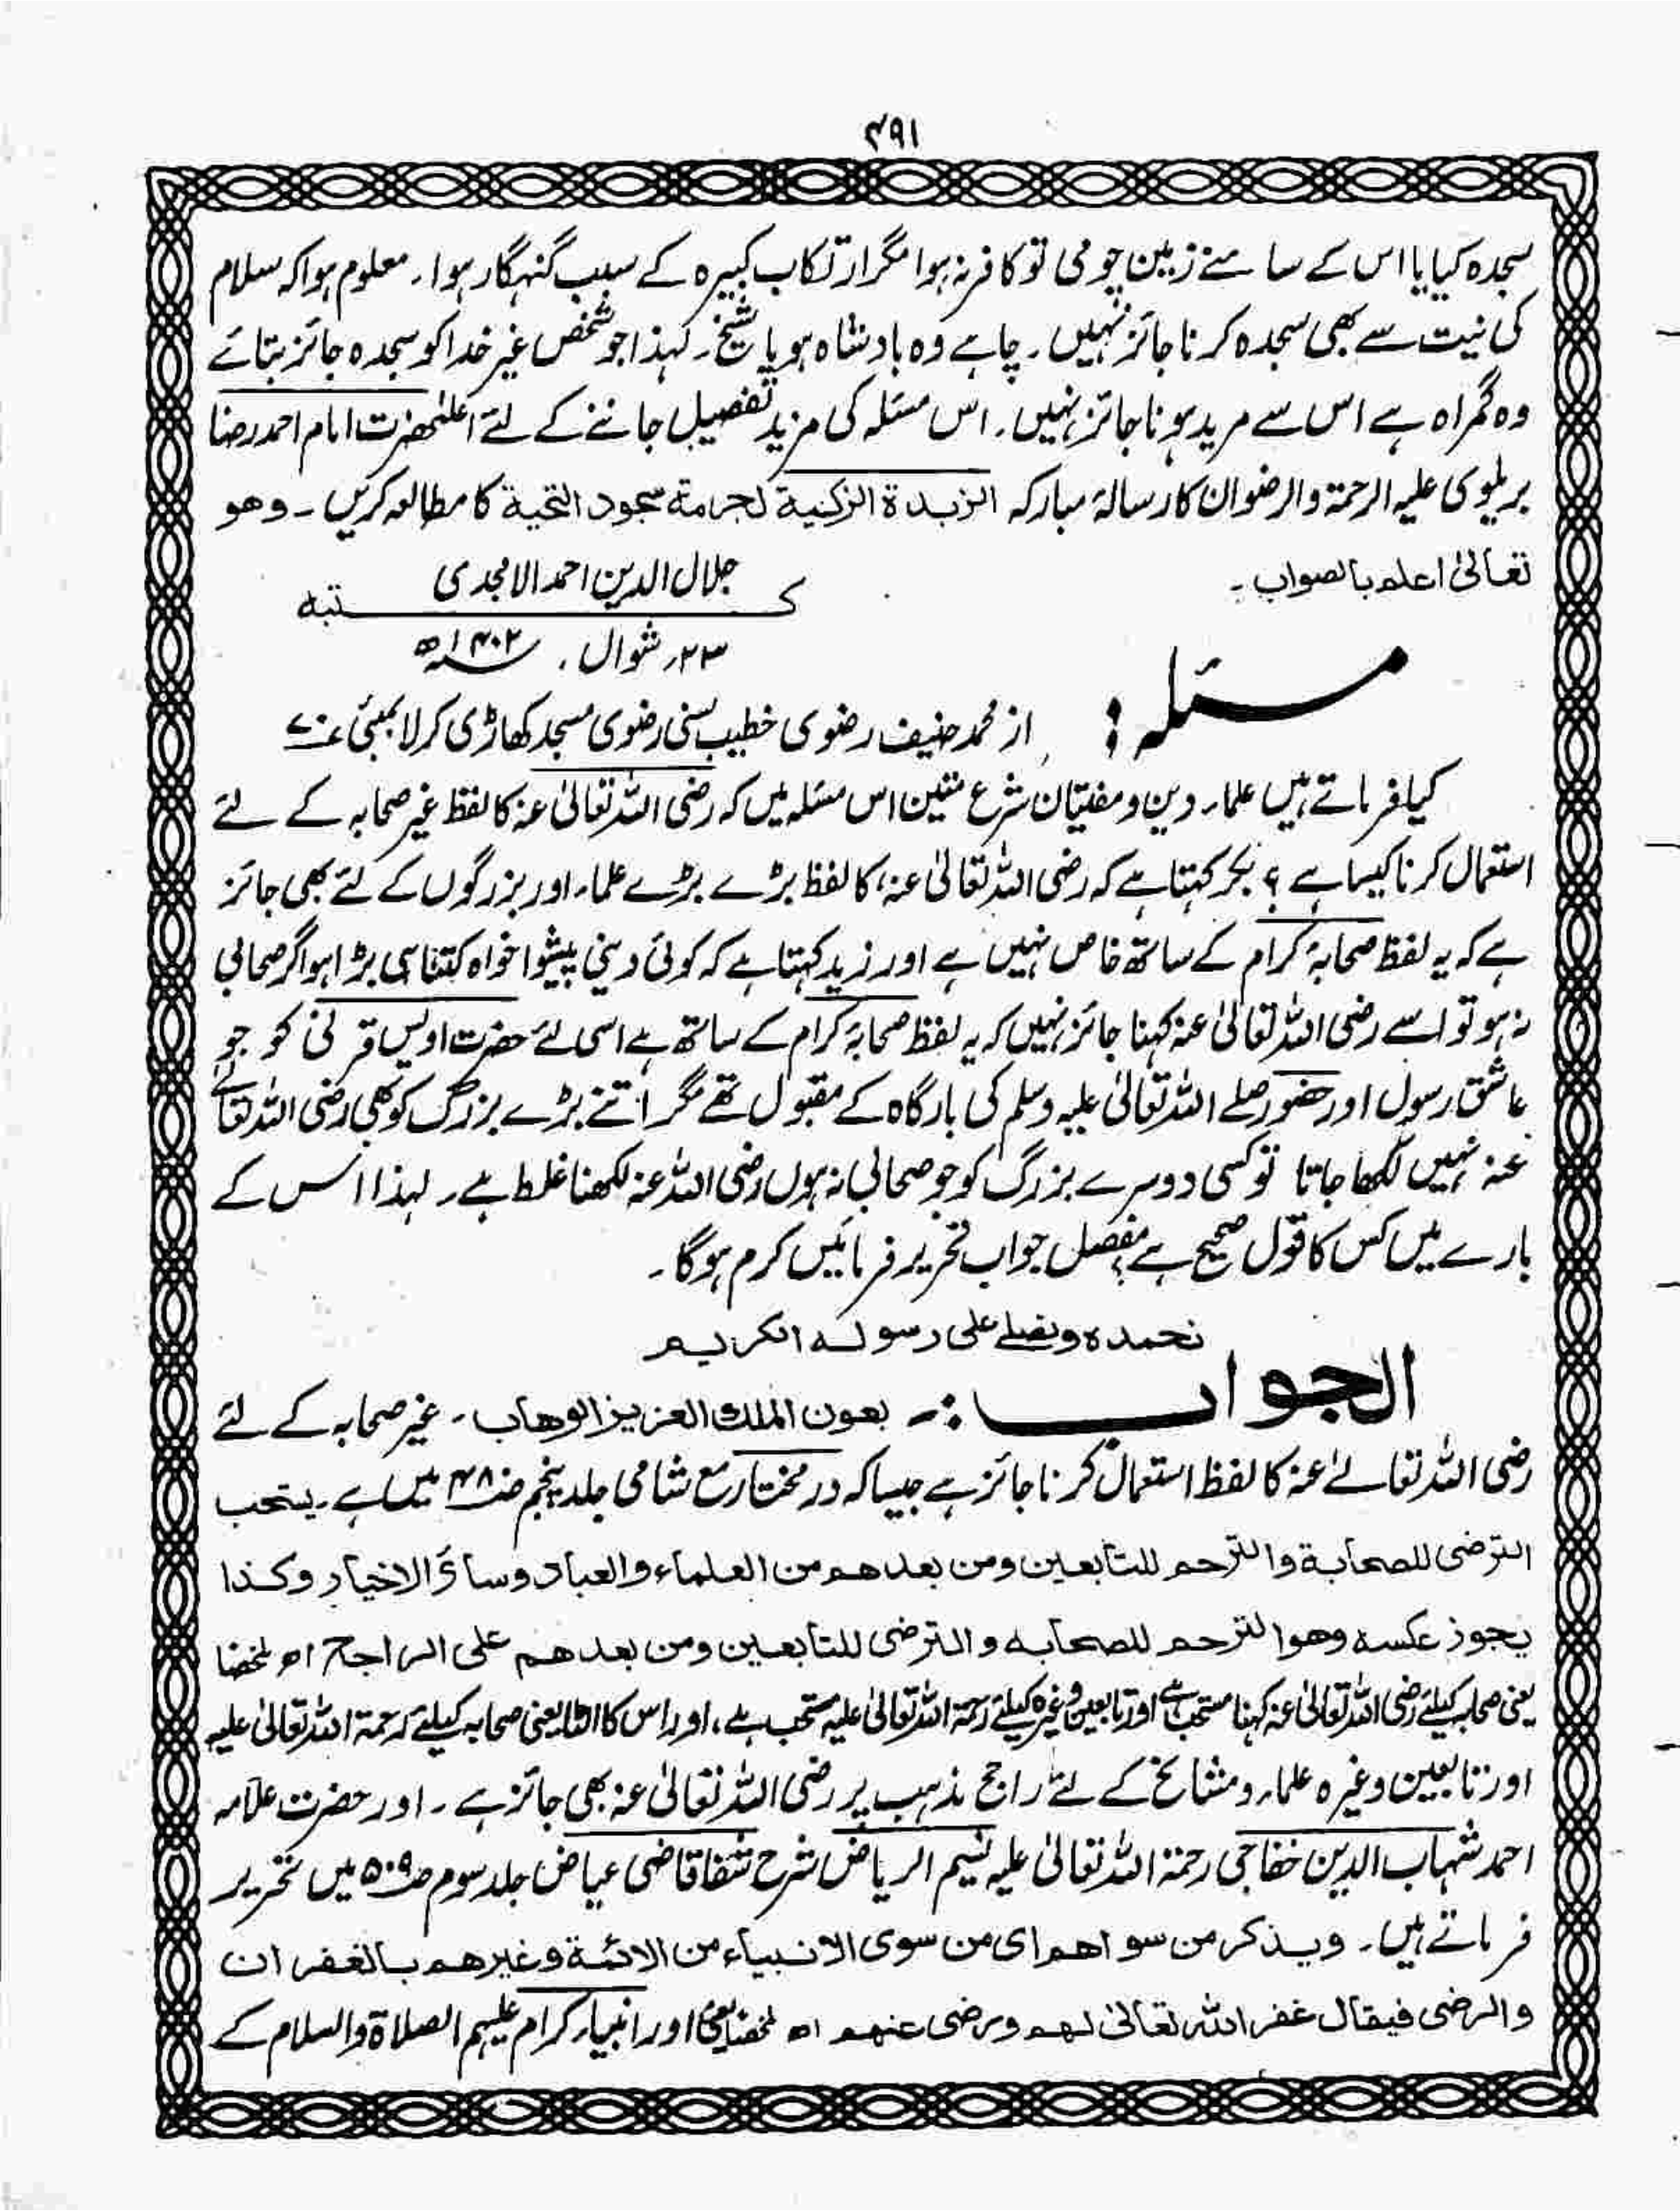 ۴۹۱
سجدہ کیا یا اس کے سامنے زمین چومی تو کافر نہ ہوا مگر ارتکاب کبیرہ کے سبب گنہگار ہوا ۔ معلوم ہوا کہ سلام
کی نیت سے بھی سجدہ کرنا جائز نہیں ۔ چاہے وہ بادشاہ ہو یا شیخ ۔ لہٰذا جو شخص غیر خدا کو سجدہ جائز بتائے
وہ گمراہ ہے اس سے مرید ہونا جائز نہیں ۔ اس مسئلہ کی مزید تفصیل جاننے کے لئے اعلیٰحضرت امام احمد رضا
بریلوی علیہ الرحمۃ والرضوان کا رسالۂ مبارکہ الزبدۃ الزکیۃ لحرمۃ سجود التحیۃ کا مطالعہ کریں ۔ وهو
تعالیٰ اعلم بالصواب ۔
جلال الدین احمد الامجدی
کتبہ
۲۳؍ شوال ، ۱۴۰۲ھ
مسئلہ :
از محمد حنیف رضوی خطیب سنی رضوی مسجد کھاڑی کرلا بمبئی ۷۰
کیا فرماتے ہیں علماء دین و مفتیان شرع متین اس مسئلہ میں کہ رضی اللہ تعالیٰ عنہ کا لفظ غیر صحابہ کے لئے
استعمال کرنا کیسا ہے ؟ بکر کہتا ہے کہ رضی اللہ تعالیٰ عنہ، کا لفظ بڑے بڑے علماء اور بزرگوں کے لئے بھی جائز
ہے کہ یہ لفظ صحابۂ کرام کے ساتھ خاص نہیں ہے اور زید کہتا ہے کہ کوئی دینی پیشوا خواہ کتنا ہی بڑا ہو اگر صحابی
نہ ہو تو اسے رضی اللہ تعالیٰ عنہ کہنا جائز نہیں کہ یہ لفظ صحابۂ کرام کے ساتھ ہے اسی لئے حضرت اویس قرنی کو جو
عاشق رسول اور حضور صلے اللہ تعالیٰ علیہ وسلم کی بارگاہ کے مقبول تھے مگر اتنے بڑے بزرگ کو بھی رضی اللہ تعالےٰ
عنہ نہیں لکھا جاتا تو کسی دوسرے بزرگ کو جو صحابی نہ ہوں رضی اللہ عنہ لکھنا غلط ہے ۔ لہذا اس کے
بارے میں کس کا قول صحیح ہے ؟ مفصل جواب تحریر فرمائیں کرم ہوگا ۔
نحمدہ ونصلے علی رسولہ الکریم
الجواب :- بعون الملک العزیز الوهاب ۔ غیر صحابہ کے لئے
رضی اللہ تعالےٰ عنہ کا لفظ استعمال کرنا جائز ہے جیسا کہ درمختار مع شامی جلد پنجم ص۴۸۰ میں ہے ۔ یستحب
الترضی للصحابة والترحم للتابعین ومن بعدهم من العلماء والعباد وسائر الاخیار وکذا
یجوز عکسه وهو الترحم للصحابه والترضی للتابعین ومن بعدهم علی الراجح اھ ملخصا
یعنی صحابہ کیلئے رضی اللہ تعالیٰ عنہ کہنا مستحب ہے اور تابعین وغیرہ کیلئے رحمۃ اللہ تعالیٰ علیہ مستحب ہے ، اور اس کا الٹا یعنی صحابہ کیلئے رحمۃ اللہ تعالیٰ علیہ
اور تابعین وغیرہ علماء و مشائخ کے لئے راجح مذہب پر رضی اللہ تعالیٰ عنہ بھی جائز ہے ۔ اور حضرت علامہ
احمد شہاب الدین خفاجی رحمۃ اللہ تعالیٰ علیہ نسیم الریاض شرح شفا قاضی عیاض جلد سوم ص۵۰۹ میں تحریر
فرماتے ہیں ۔ ویذکر من سواهم ای من سوی الانبیاء من الائمة وغیرهم بالغفران
والرضی فیقال غفر اللہ تعالیٰ لهم ورضی عنهم اھ ملخصا یعنی اور انبیاء کرام علیہم الصلاۃ والسلام کے